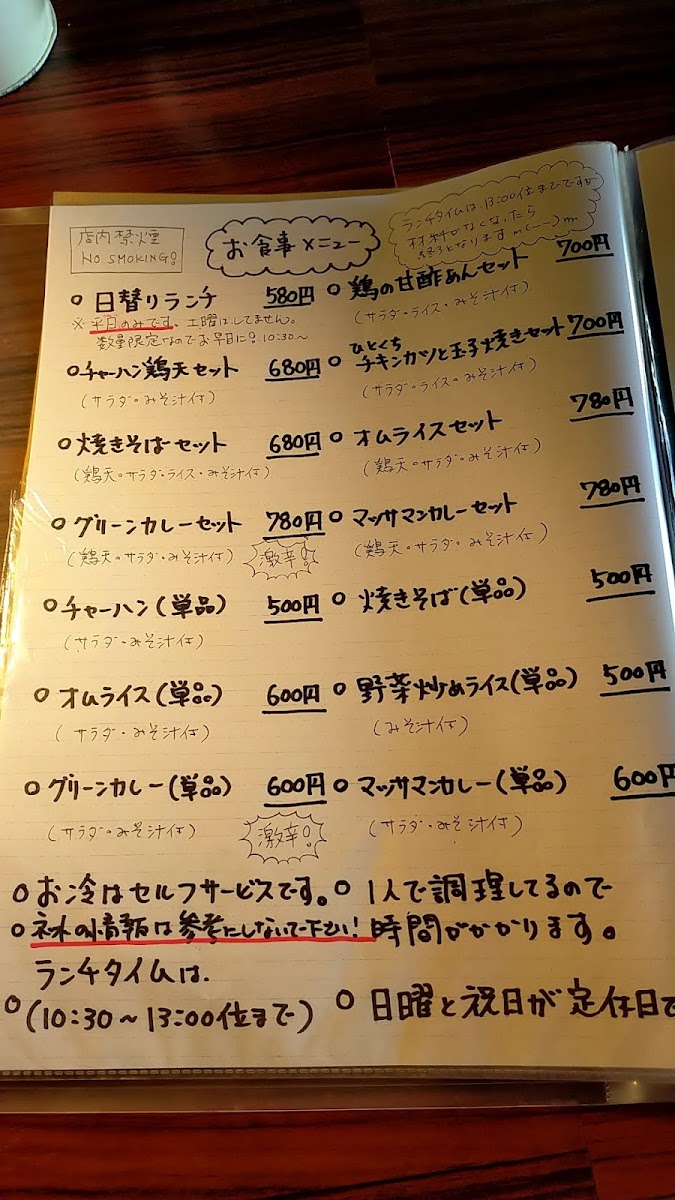 店内禁煙
NO SMOKING!
お食事メニュー
ランチタイムは13:00位までですが
材料がなくなったら
終了となりますm(--)m
○日替りランチ 580円
※平日のみです。土曜はしてません。
数量限定なのでお早目に!10:30〜
○チャーハン鶏天セット 680円
(サラダ・みそ汁付)
○焼きそばセット 680円
(鶏天・サラダ・ライス・みそ汁付)
○グリーンカレーセット 780円
(鶏天・サラダ・みそ汁付)
激辛!
○チャーハン(単品) 500円
(サラダ・みそ汁付)
○オムライス(単品) 600円
(サラダ・みそ汁付)
○グリーンカレー(単品) 600円
(サラダ・みそ汁付)
激辛!
○鶏の甘酢あんセット 700円
(サラダ・ライス・みそ汁付)
ひとくち
○チキンカツと玉子焼きセット 700円
(サラダ・ライス・みそ汁付)
○オムライスセット 780円
(鶏天・サラダ・みそ汁付)
○マッサマンカレーセット 780円
(鶏天・サラダ・みそ汁付)
○焼きそば(単品) 500円
○野菜炒めライス(単品) 500円
(みそ汁付)
○マッサマンカレー(単品) 600円
(サラダ・みそ汁付)
○お冷はセルフサービスです。
○ネットの情報は参考にしないで下さい!
ランチタイムは.
○(10:30〜13:00位まで)
○1人で調理してるので
時間がかかります。
○日曜と祝日が定休日で